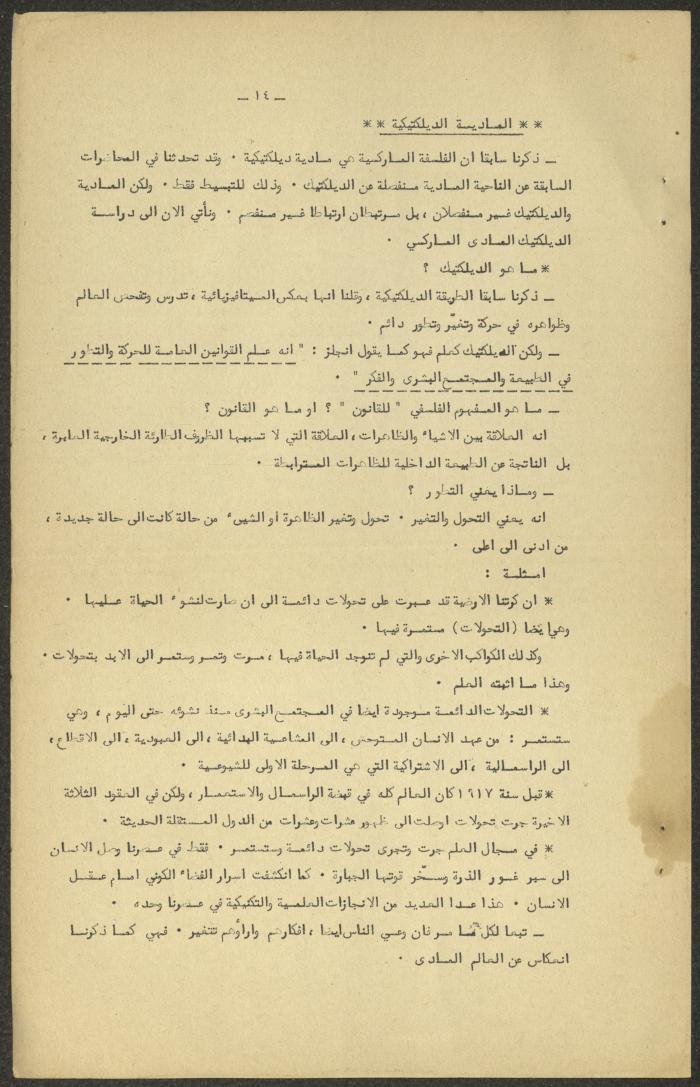 ـ ١٤ ـ
** الماديــة الديلكتيكية **
ـ ذكرنا سابقا ان الفلسفة الماركسية هي مادية ديلكتيكية ٠ وقد تحدثنا في المحاضرات
السابقة عن الناحية المادية منفصلة عن الديلكتيك ٠ وذلك للتبسيط فقط ٠ ولكن المادية
والديلكتيك غير منفصلان ، بل مرتبطان ارتباطا غير منفصم ٠ ونأتي الان الى دراسة
الديلكتيك المادى الماركسي ٠
* ما هو الديلكتيك ؟
ـ ذكرنا سابقا الطريقة الديلكتيكية ، وقلنا انها بعكس الميتافيزيائية ، تدرس وتفحص العالم
وظواهره في حركة وتغيّر وتطور دائم ٠
ـ ولكن الديلكتيك كعلم فهو كما يقول انجلز : " انه علم القوانين العامة للحركة والتطور
في الطبيعة والمجتمع البشرى والفكر " ٠
ـ ما هو المفهوم الفلسفي " للقانون " ؟ او ما هو القانون ؟
انه العلاقة بين الاشياء والظاهرات ، العلاقة التي لا تسببها الظروف الطارئة الخارجية العابرة ،
بل الناتجة عن الطبيعة الداخلية للظاهرات المترابطة ٠
ـ وماذا يعني التطور ؟
انه يعني التحول والتغير ٠ تحول وتغير الظاهرة او الشيىء من حالة كانت الى حالة جديدة ،
من ادنى الى اعلى ٠
امثلة :
* ان كرتنا الارضية قد عبرت على تحولات دائمة الى ان صارت لنشوء الحياة عليها ٠
وهي ايضا (التحولات) مستمرة فيها ٠
وكذلك الكواكب الاخرى والتي لم تتوجد الحياة فيها ، مرت وتمر وستمر الى الابد بتحولات ٠
وهذا ما اثبته العلم ٠
* التحولات الدائمة موجودة ايضا في المجتمع البشرى منذ نشوئه حتى اليوم ، وهي
ستستمر : من عهد الانسان المتوحش ، الى المشاعية البدائية ، الى العبودية ، الى الاقطاع ،
الى الراسمالية ، الى الاشتراكية التي هي المرحلة الاولى للشيوعية ٠
* قبل سنة ١٩١٧ كان العالم كله في قبضة الراسمال والاستعمار ، ولكن في العقود الثلاثة
الاخيرة جرت تحولات اوصلت الى ظهور عشرات وعشرات من الدول المستقلة الحديثة ٠
* في مجال العلم جرت وتجرى تحولات دائمة وستستمر ٠ فقط في عصرنا وصل الانسان
الى سبر غور الذرة وسخّر قوتها الجبارة ٠ كما انكشفت اسرار الفضاء الكوني امام عقل
الانسان ٠ هذا عدا العديد من الانجازات العلمية والتكتيكية في عصرنا وحده ٠
ـ تبعا لكل ما مر فان وعي الناس ايضا ، افكارهم واراؤهم تتغير ٠ فهي كما ذكرنا
انعكاس عن العالم المادى ٠